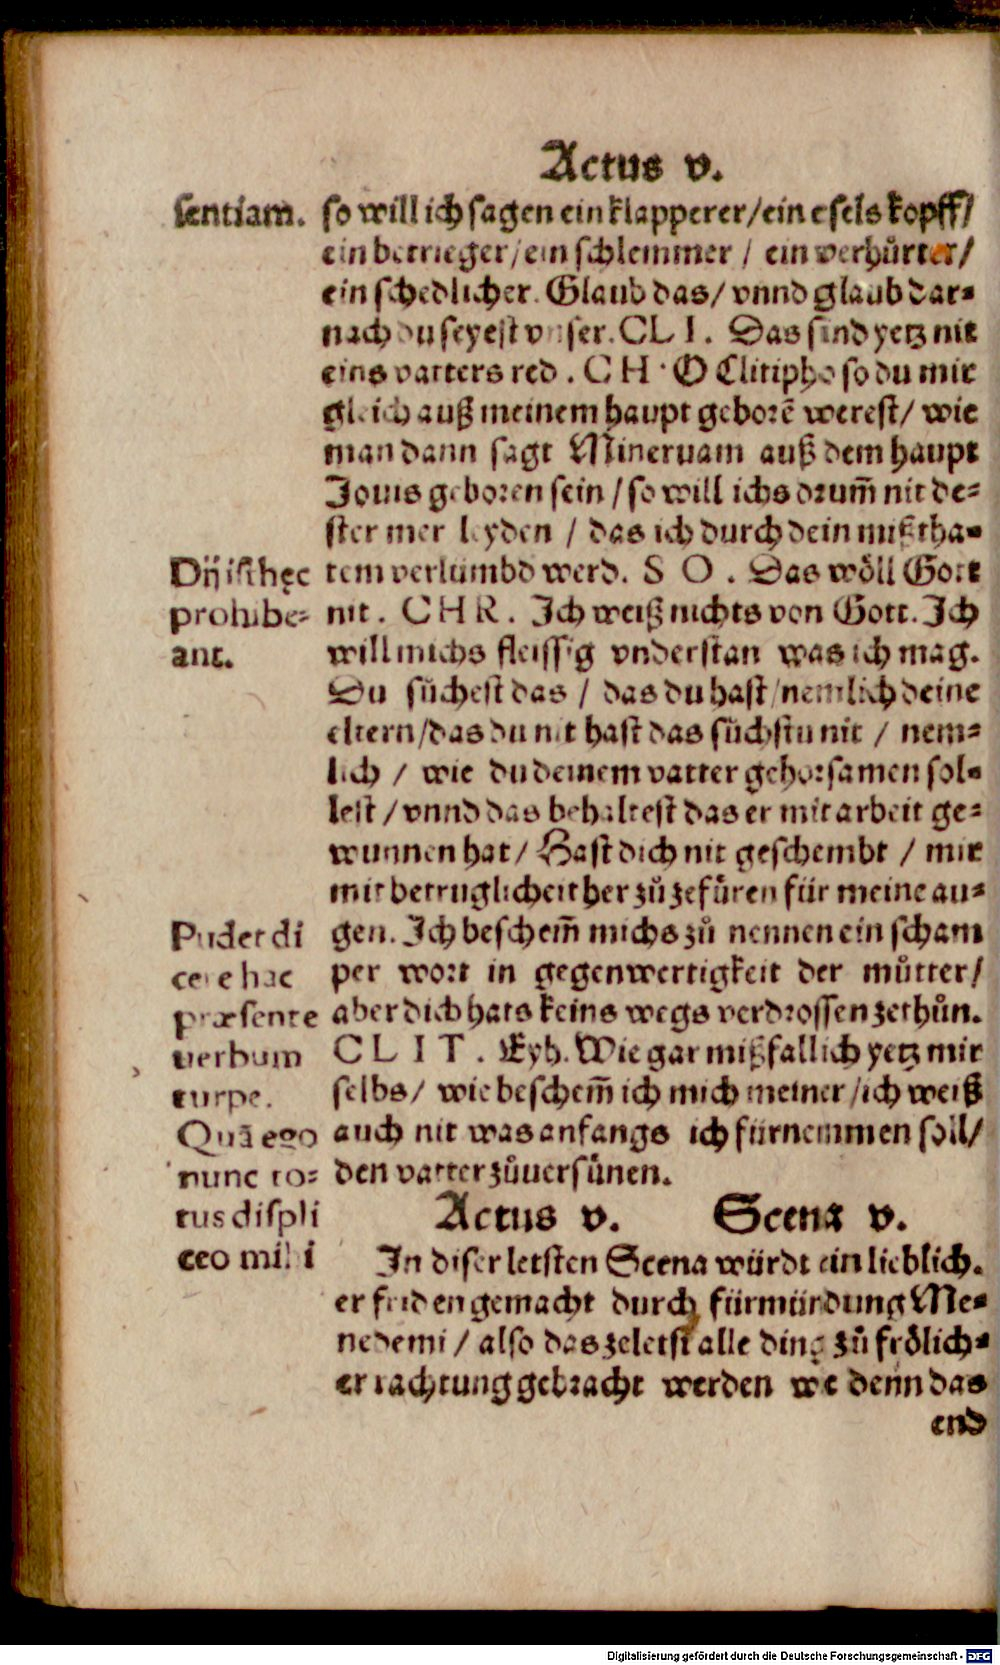 Actus v.
sentiam.
so will ich sagen ein klapperer/ein esels kopff/
ein betrieger/ein schlemmer / ein verhůrter/
ein schedlicher. Glaub das/ vnnd glaub dar-
nach du seyest vnser. CLI. Das sind yetz nit
eins vatters red. CH. O Clitipho so du mir
gleich auß meinem haupt geborē werest/ wie
man dann sagt Mineruam auß dem haupt
Jouis geboren sein / so will ichs drum̄ nit de-
ster mer leyden / das ich durch dein mißtha-
Dij isthęc
prohibe-
ant.
tem verlümbd werd. SO. Das wöll Gott
nit. CHR. Ich weiß nichts von Gott. Ich
will michs fleissig vnderstan was ich mag.
Du sůchest das / das du hast/nemlich deine
eltern/das du nit hast das sůchstu nit / nem-
lich / wie du deinem vatter gehorsamen sol-
lest / vnnd das behaltest das er mit arbeit ge-
wunnen hat / Hast dich nit geschembt / mir
mit betruglicheit her zů zefüren für meine au-
Pudet di
cere hac
præsente
uerbum
turpe.
Quā ego
nunc to-
tus displi
ceo mihi
gen. Ich beschem̄ michs zů nennen ein scham
per wort in gegenwertigkeit der můtter/
aber dich hats keins wegs verdrossen zethůn.
CLIT. Eyh. Wie gar mißfallich yetz mir
selbs/ wie beschem̄ ich mich meiner /ich weiß
auch nit was anfangs ich fürnemmen soll/
den vatter zůuersünen.
Actus v. Scena v.
In diser letsten Scena würdt ein lieblich.
er friden gemacht durch fürmürdung Me-
nedemi / also das zeletst alle ding zů frölich-
er rachtung gebracht werden we denn das
end
Digitalisierung gefördert durch die Deutsche Forschungsgemeinschaft - DFG